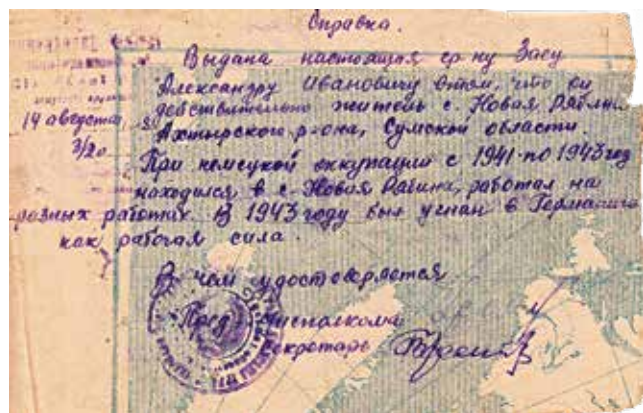 Справка.
Выдана настоящая гр-ну Засу
Александру Ивановичу в том, что он
действительно житель с. Новая Рябина
14 августа
Ахтырского р-она, Сумской области.
3/20
При немецкой оккупации с 1941 по 1943 год
находился в с. Новая Рабина, работал на
разных работах. В 1943 году был угнан в Германию
как рабочая сила.
В чем удостоверяется
Пред. исполкома
Секретарь